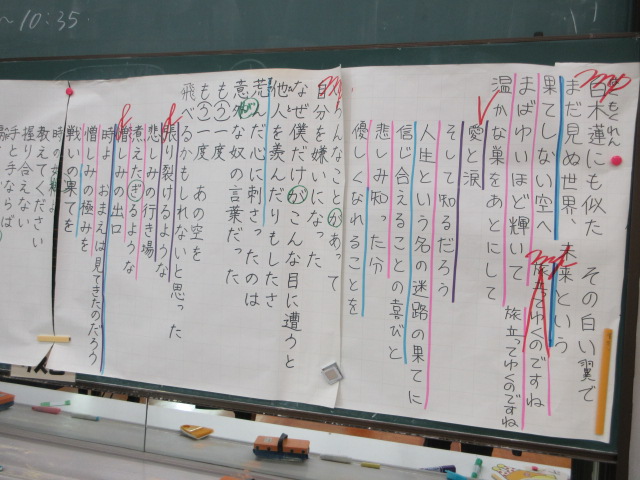 ～10:35
mp
白木蓮にも似た その白い翼で
もくれん
まだ見ぬ世界、未来という
果てしない空へ 旅立ってゆくのですね
まばゆいほど輝いて 旅立ってゆくのですね
温かな巣をあとにして
愛と涙
そして知るだろう
人生という名の迷路の果てに
信じ合えることの喜びと
悲しみ知った分
優しくなれることを
んなことがあって
自分を嫌いになった
なぜ僕だけがこんな目に遭うと
他人を羨んだりもしたさ
荒んだ心に刺さったのは
意外な奴の言葉だった
もう一度 あの空を
飛べるかもしれないと思った
張り裂けるような
悲しみの行き場
煮えたぎるような
憎しみの出口
時よ おまえは見てきたのだろう
憎しみの極みを
戦いの果てを
時の女神よ
教えてください
握り合えない
手と手ならば